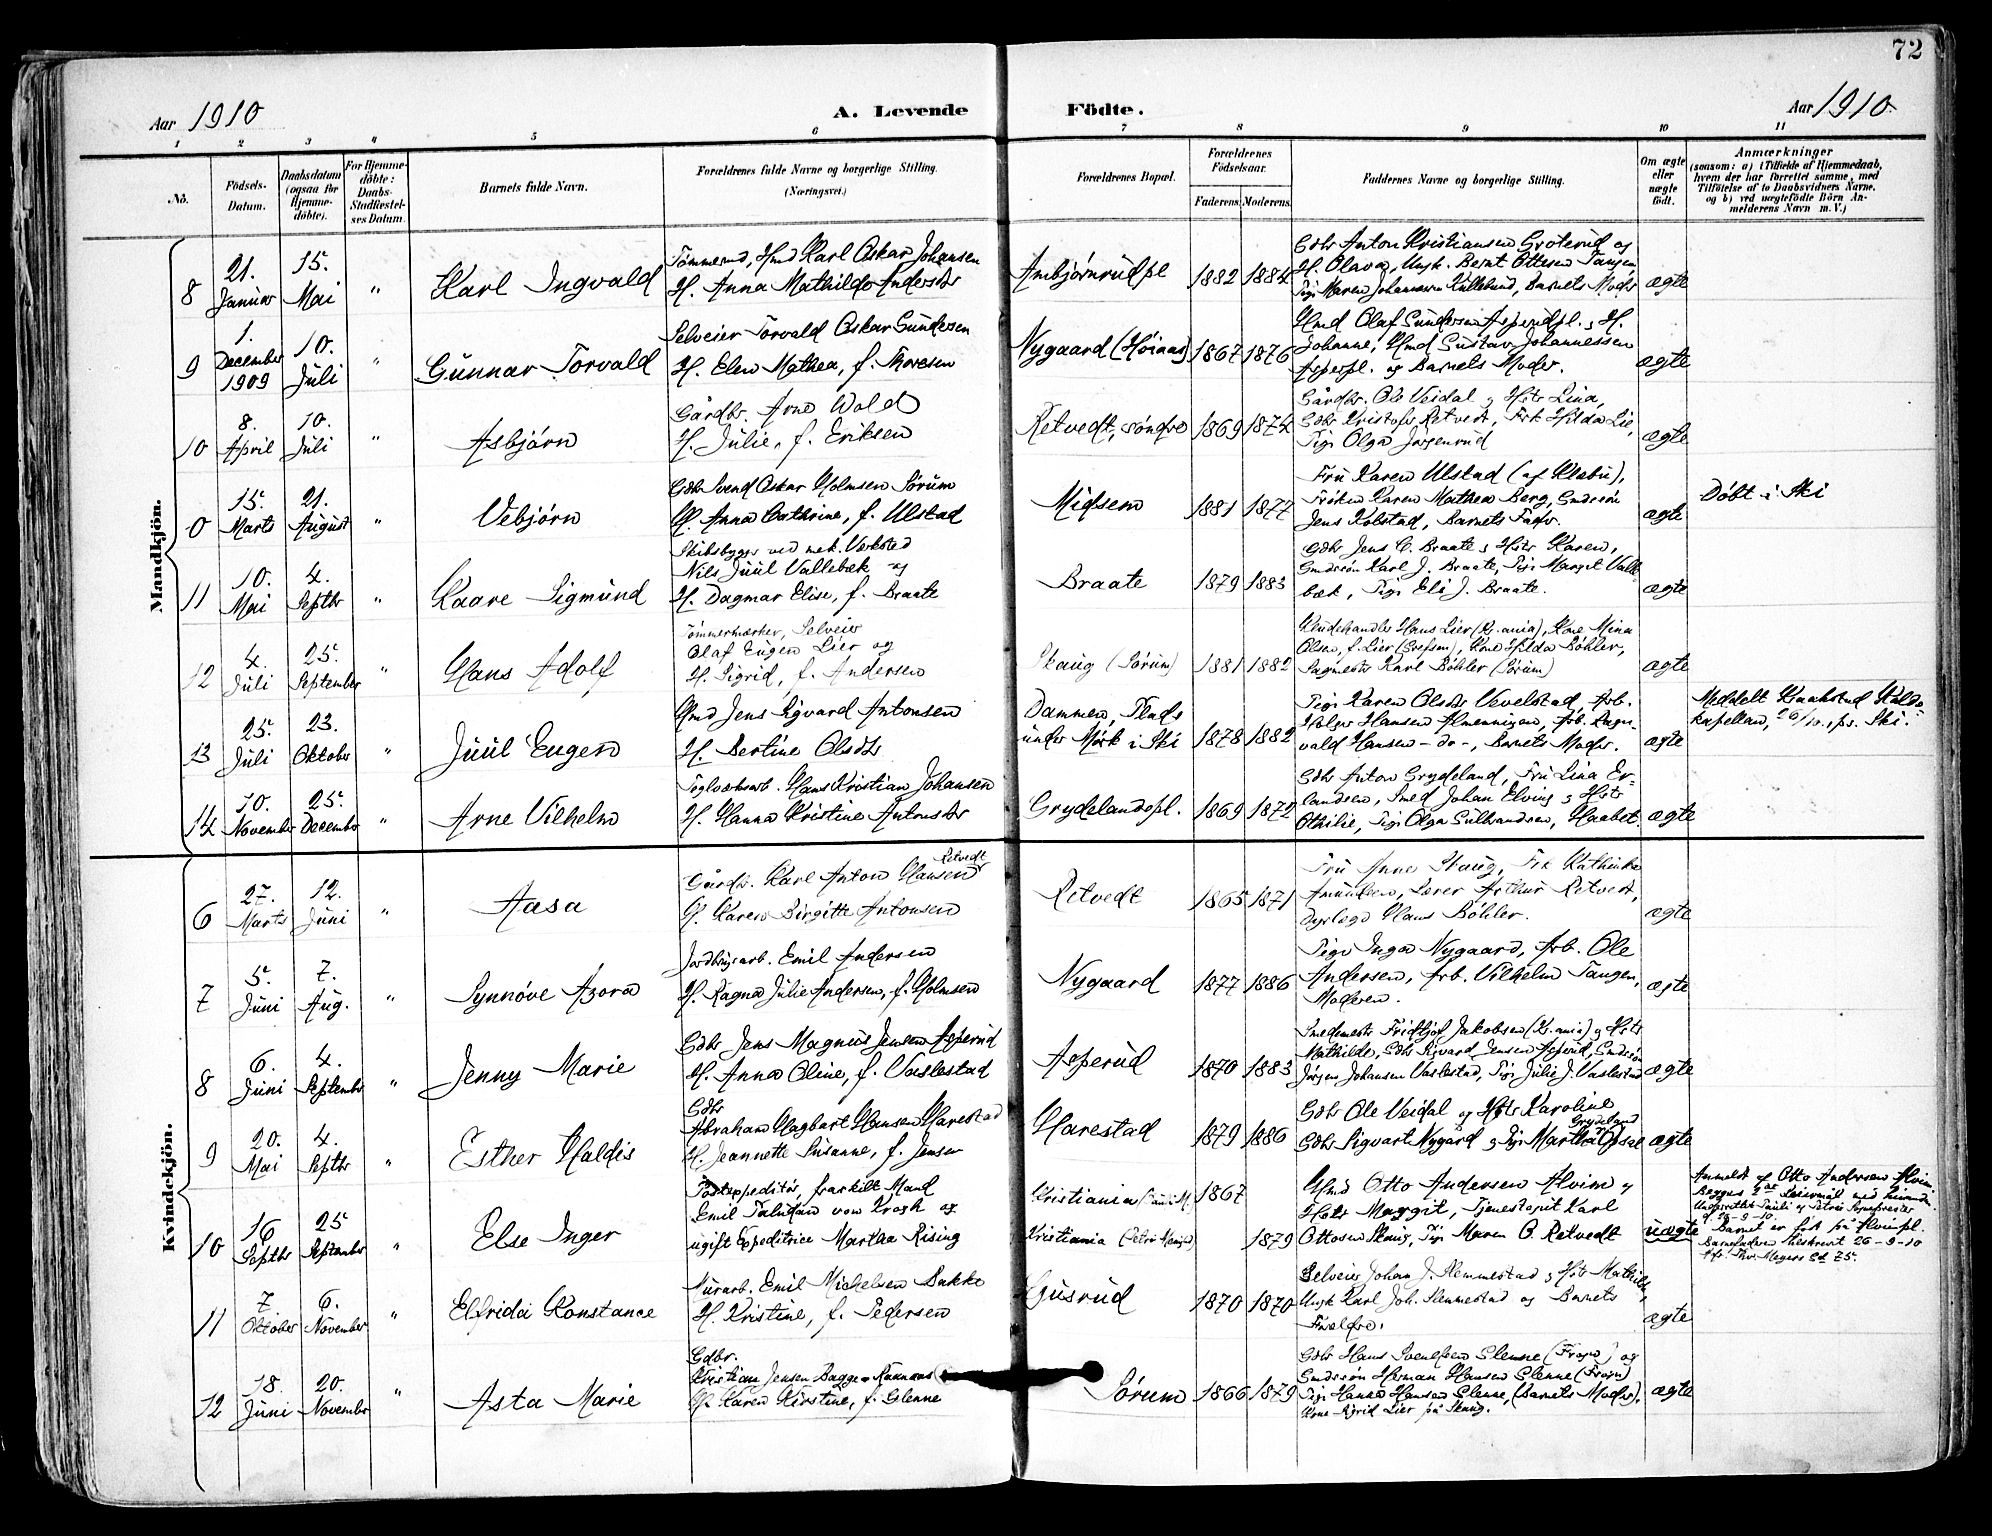 72
Aar 1910
A. Levende Födte.
Aar 1910.
1 2 3 " 5 6 7 8 9 10 11
No.
Födsels-Datum.
Daabsdatum (ogsaa for Hjemme-döbte).
For Hjemme-döbte: Daabs-Stadfæstel-ses Datum.
Barnets fulde Navn.
Forældrenes fulde Navne og borgerlige Stilling. (Næringsvei.)
Forældrenes Bopæl.
Forældrenes Födselsaar.
Faderens. Moderens.
Faddernes Navne og borgerlige Stilling.
Om ægte eller uægte födt.
Anmærkninger (saasom: a) i Tilfælde af Hjemmedaab, hvem der har forrettet samme, med Tilföielse af to Daabsvidners Navne, og b) ved uægtefödte Börn An-melderens Navn m. V.)
Mandkjön.
8 21. Januar 15. Mai " Karl Ingvald
Tømmermd, Hmd Karl Oskar Johansen
H. Anna Mathilde Andersdtr
Ambjørnrudpl 1882 1884
Gdbr Anton Kristiansen Groterud og
H. Olava, Ungk. Bernt Ottesen Tangen,
Pige Maren Johannesen Kullebund, Barnets Moder
ægte
9 1. December 1909 10. Juli " Gunnar Torvald
Selveier Torvald Oskar Gundersen
H. Elen Mathea, f. Thoresen
Nygaard (Høiaas) 1867 1876
Hmd Olaf Gundersen Asperudpl. & H.
Johanne, Hmd Gustav Johannessen
Asperpl. og Barnets Moder.
ægte
10 8. April 10. Juli " Asbjørn
Gårdbr. Arne Wold
H. Julie, f. Eriksen
Retvedt, søndre 1869 1874
Gårdbr. Ole Veidal & Hstr Lina,
Gdbr Kristofer Retvedt, Frk Hilda Lie,
Pige Olga Jørgenrud
ægte
0 15. Marts 21. August " Vebjørn
Gdbr Svend Oskar Holmsen Sørum
H. Anna Cathrine, f. Ulstad
Midsem 1881 1877
Fru Karen Ulstad (af Klæbu),
Frøken Karen Mathea Berg, Gmdrsøn
Jens Kolstad, Barnets Fader.
ægte
Døbt i Ski
11 10. Mai 4. Septbr " Kaare Sigmund
Skibsbygger ved mek. Værksted
Nils Juul Vallebæk og
H. Dagmar Elise, f. Braate
Braate 1879 1883
Gdbr Jens C. Braate & Hstr Karen,
Gmdrsøn Karl J. Braate, Pige Margit Valle-
bæk, Pige Eli J. Braate.
ægte
12 4. Juli 25. September " Hans Adolf
Tømmermærker, Selveier
Olaf Eugen Lier og
H. Sigrid, f. Andersen
Skaug (Sørum) 1881 1882
Kludehandler Hans Lier (Kr.ania), Kone Mina
Olsen, f. Lier (Grefsen), Kone Hilda Bøhler,
Sagmester Karl Bøhler (Sørum)
ægte
13 25. Juli 23. Oktober " Juul Eugen
Hmd Jens Sigvard Antonsen
H. Bertine Olsdtr
Dammen, Plads
under Mørk i Ski 1878 1882
Pige Karen Olsdtr Vevelstad, Arb.
Holger Hansen Almenningen, Arb. Ragn-
vald Hansen - do -, Barnets Moder.
ægte
Meddelt Kraakstad Kalds-
kapellan, 26/10., pr. Ski.
14 10. November 25. December " Arne Vilhelm
Teglværksarb. Hans Kristian Johansen
H. Hanna Kristine Antonsdtr
Grydelandspl. 1869 1872
Gdbr Anton Grydeland, Fru Lina Er-
landsen, Smed Johan Elving & Hstr
Othilie, Pige Olga Gulbrandsen, Haabet.
ægte
Kvindekjön.
6 27. Marts 12. Juni " Aasa
Gårdbr. Karl Anton Hansen Retvedt
H. Karen Birgitte Antonsen
Retvedt 1865 1871
Fru Anne Skaug, Frk Kathinka
Amundsen, Lærer Arthur Retvedt,
Dyrlæge Hans Bøhler.
ægte
7 5. Juni 7. Aug. " Synnøve Azora
Jordbrugsarb. Emil Andersen
H. Ragna Julie Andersen, f. Holmsen
Nygaard 1877 1886
Pige Inga Nygaard, Arb. Ole
Andersen, Arb. Vilhelm Tangen,
Moderen.
ægte
8 6. Juni 4. September " Jenny Marie
Gdbr Jens Magnus Jensen Asperud
H. Anna Oline, f. Vaslestad
Asperud 1870 1883
Smedmester Fridtjof Jakobsen (Kr.ania) & Hstr
Mathilde, Gdbr Sigvard Jensen Asperud, Gmdrsøn
Jørgen Johansen Vaslestad, Pige Julie J. Vaslestad
ægte
9 20. Mai 4. Septbr " Esther Haldis
Gdbr
Abraham Hagbart Hansen Harestad
H. Jeannette Susanne, f. Jensen
Harestad 1879 1886
Gdbr Ole Veidal og Hstr Karoline
Gdbr Sigvart Nygård & Pige Martha
ægte
10 16 Septbr 25 September " Else Inger
Postexpeditør, fraskilt Mand
Emil Paludan von Krogh og
ugift Expeditrice Martha Rising
Kristiania 1867
Kristiania 1879
Hmd Otto Andersen Alvim og
Hstr Maggit, Tjenestegut Karl
Ottosen Skaug, Pige Maren O. Retvedt
uægte
Anmeldt af Otto Andersen Alvim.
Begges Leiermål med hinanden.
Barnet er født på Alvimpl.
26-9-10
11 7. Oktober 6. November " Elfrida Konstance
Murarb. Emil Michelsen Bakke
H. Kristine, f. Pedersen
Gjusrud 1870 1870
Selveier Johan J. Hemmestad & Hstr Mathilde,
Ungk Karl Joh. Hemmestad og Barnets
Forældre.
ægte
12 18. Juni 20. November " Asta Marie
Gdbr.
Kristian Jensen Bagge
H. Karen Kirstine, f. Glenne
Sørum 1866 1879
Gdbr Hans Svendsen Glenne (Frogn) og
Gmdrsøn Herman Hansen Glenne (Frogn)
Pige Hanna Hansen Glenne, (Barnets Moder).
Kone Sigrid Lier på Skaug.
ægte